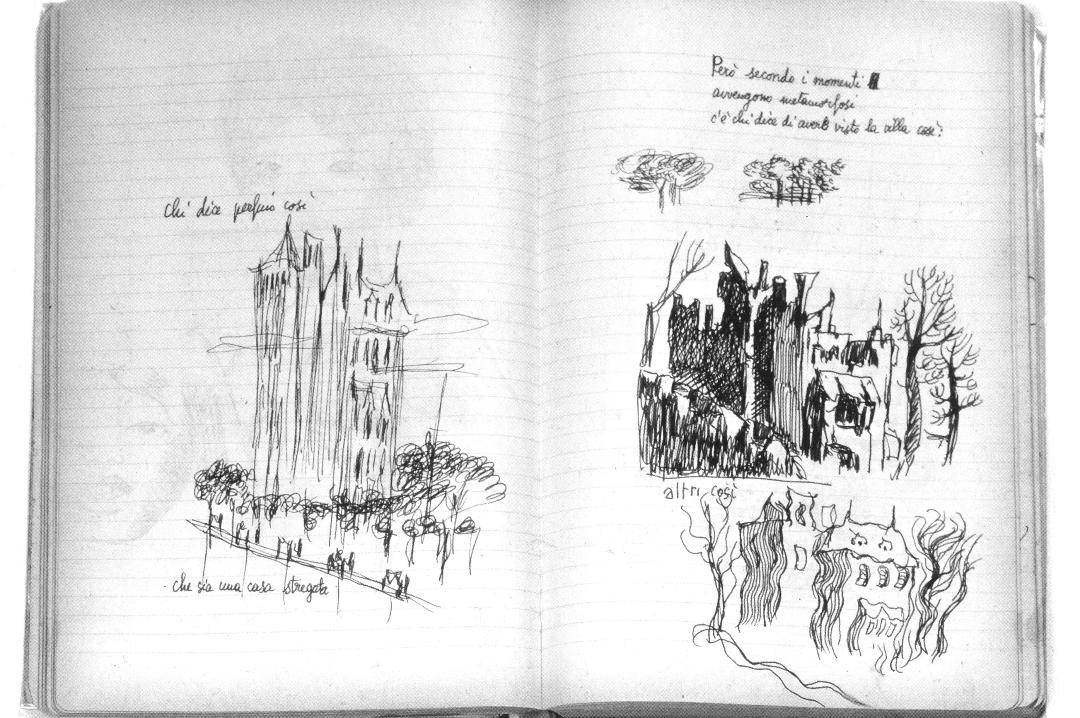 Chi dice perfino così
che sia una casa stregata
Però secondo i momenti
avvengono metamorfosi
c'è chi dice di averla vista la villa così:
altri così